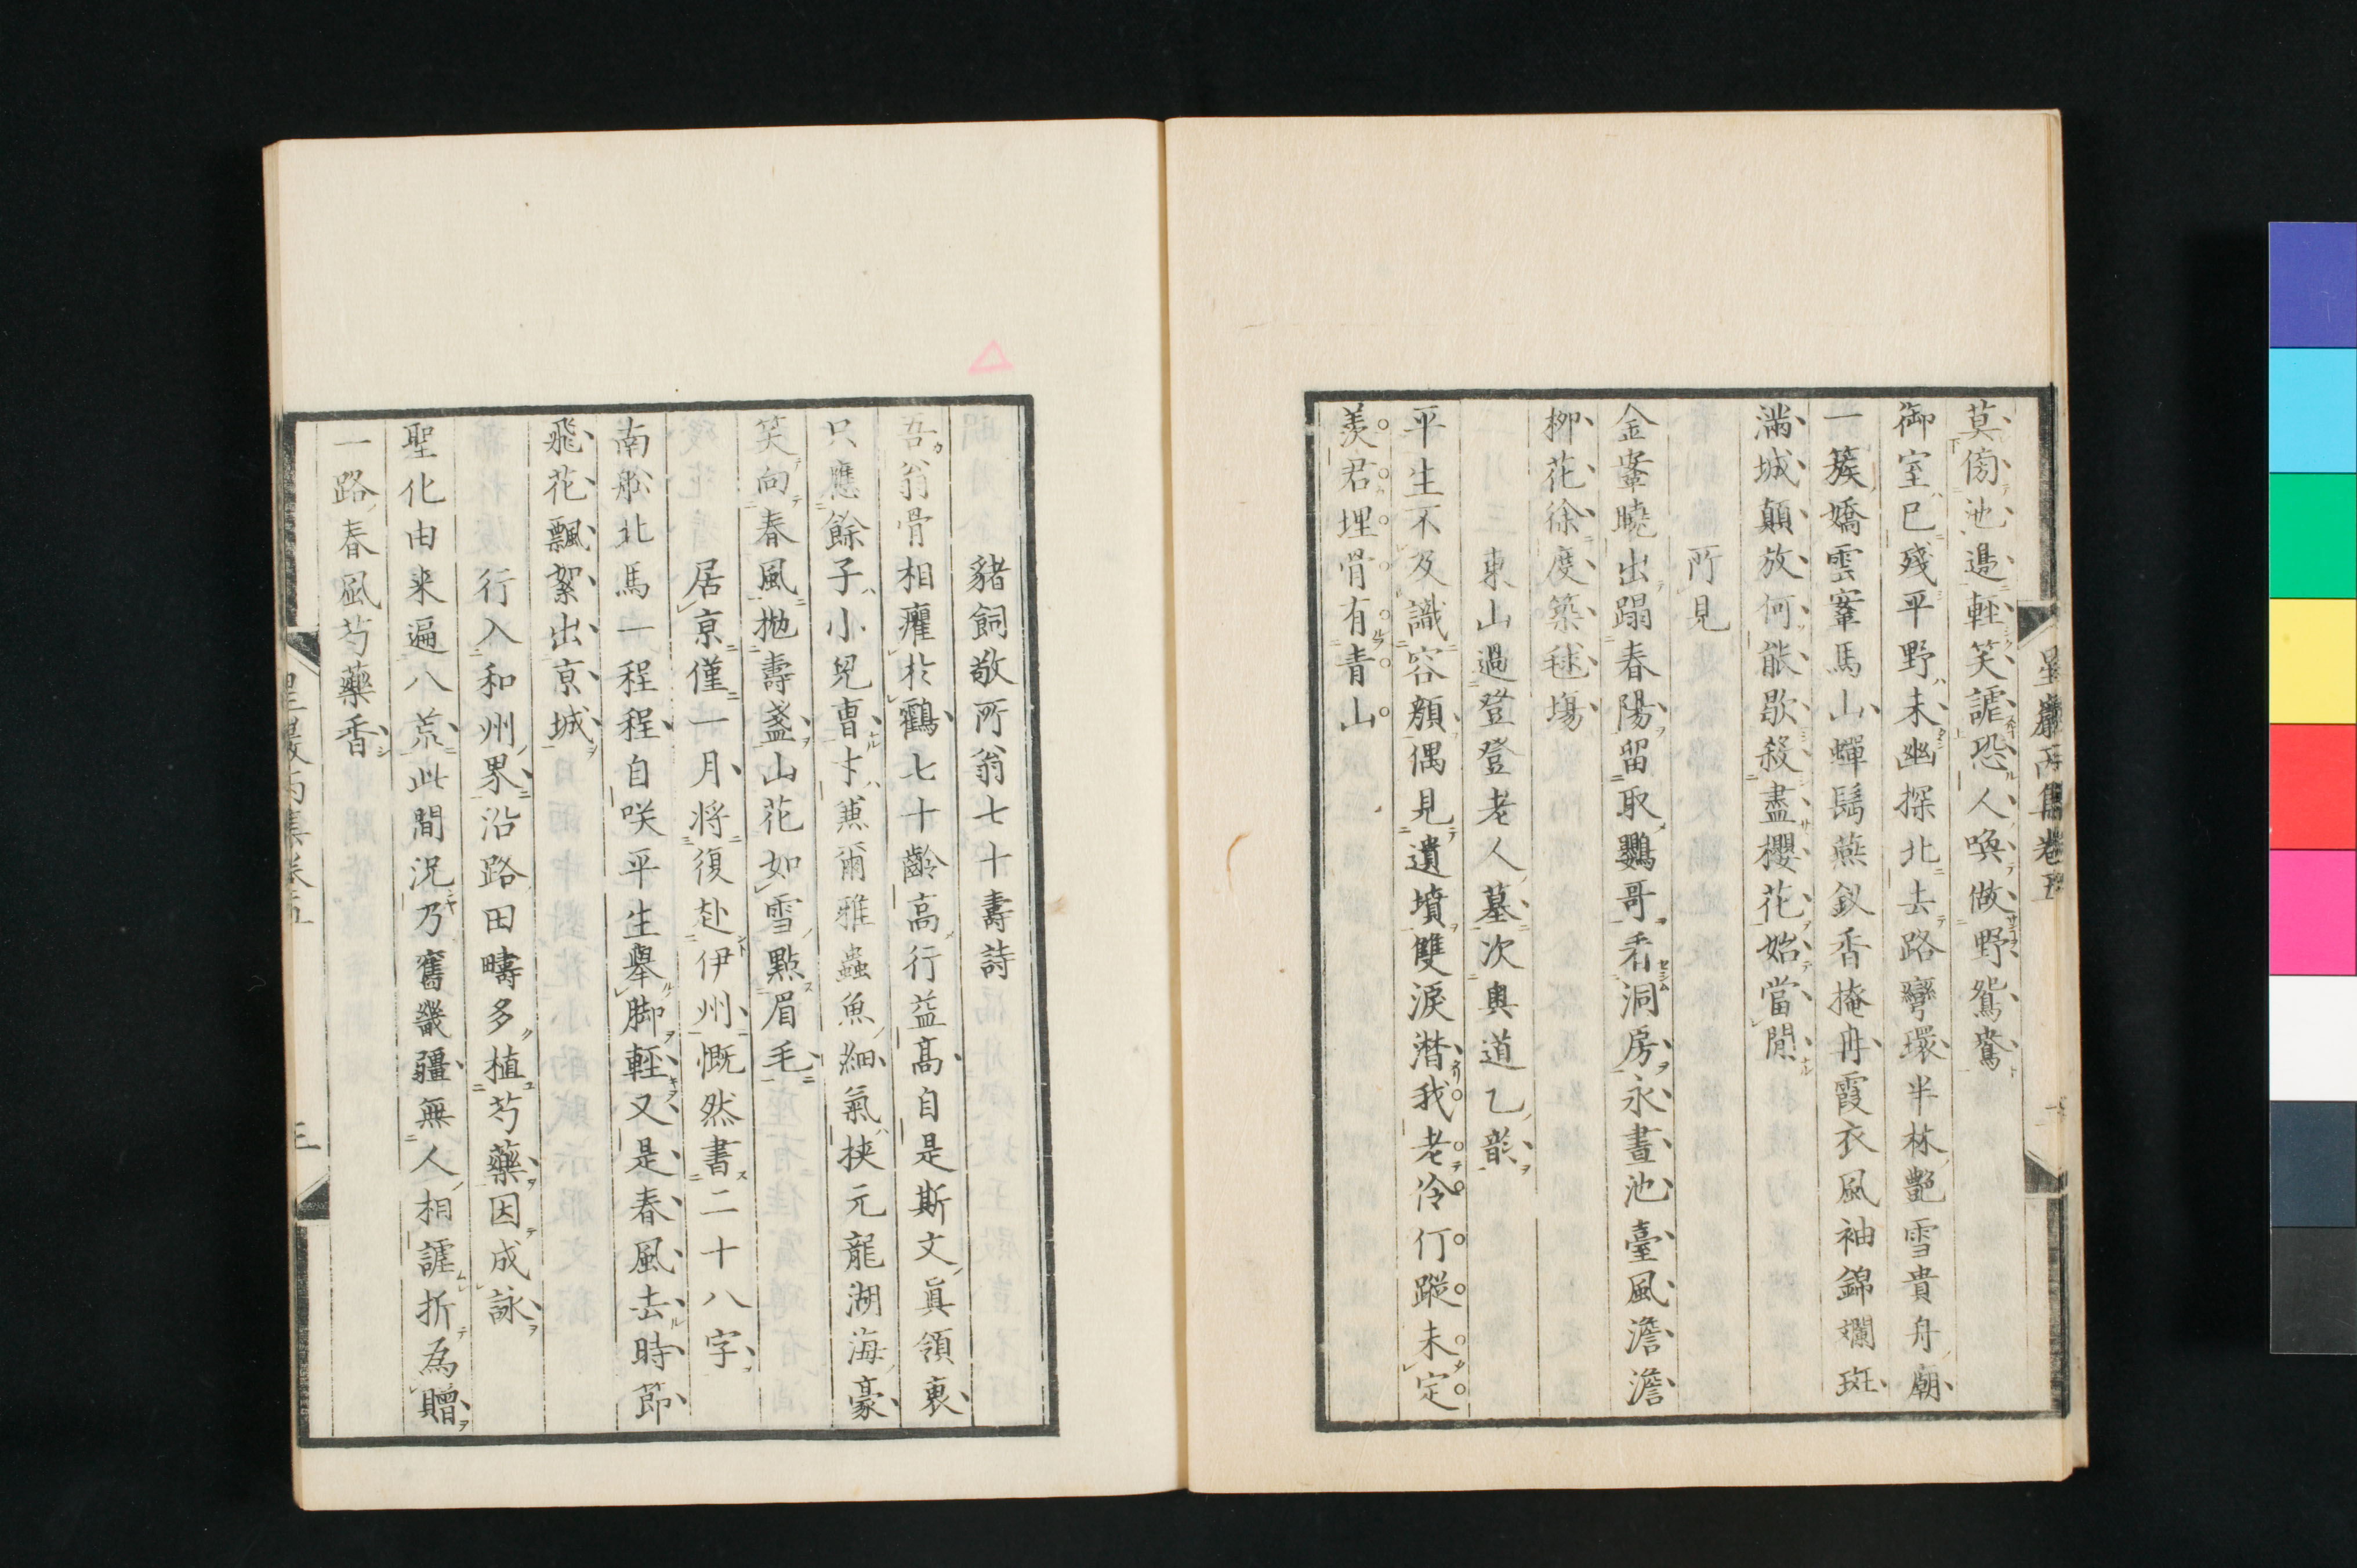 星巖丙集卷五
莫傍池邊輕笑謔恐人喚做野鴛鴦
御室已殘平野未幽探北去路彎環半林艷雪貴舟廟
一簇嬌雲鞏馬山蟬鬂燕釵香掩冉霞衣風袖錦斕斑
滿城顛放何能歇殺盡櫻花始當閒
所見
金鞏曉出蹋春陽留取鸚哥看洞房永晝池臺風澹澹
柳花徐度築毬場
東山過登登老人墓次輿道乙韻
平生不及識容顏偶見遺墳雙淚潸我老伶仃蹤未定
羨君埋骨有青山
豬飼敬所翁七十壽詩
吾翁骨相癯於鶴七十齡高行益高自是斯文真領裏
只應餘子小兒曹才兼爾雅蟲魚細氣挾元龍湖海豪
笑向春風拋壽盞山花如雪點眉毛
居京僅一月將復赴伊州慨然書二十八字
南船北馬一程程自咲平生舉脚輕又是春風去時節
飛花飄絮出京城
行入和州界沿路田疇多植芍藥因成詠
聖化由来遍八荒此間況乃舊畿疆無人相謔折為贈
一路春風芍藥香
星巖丙集卷五
三